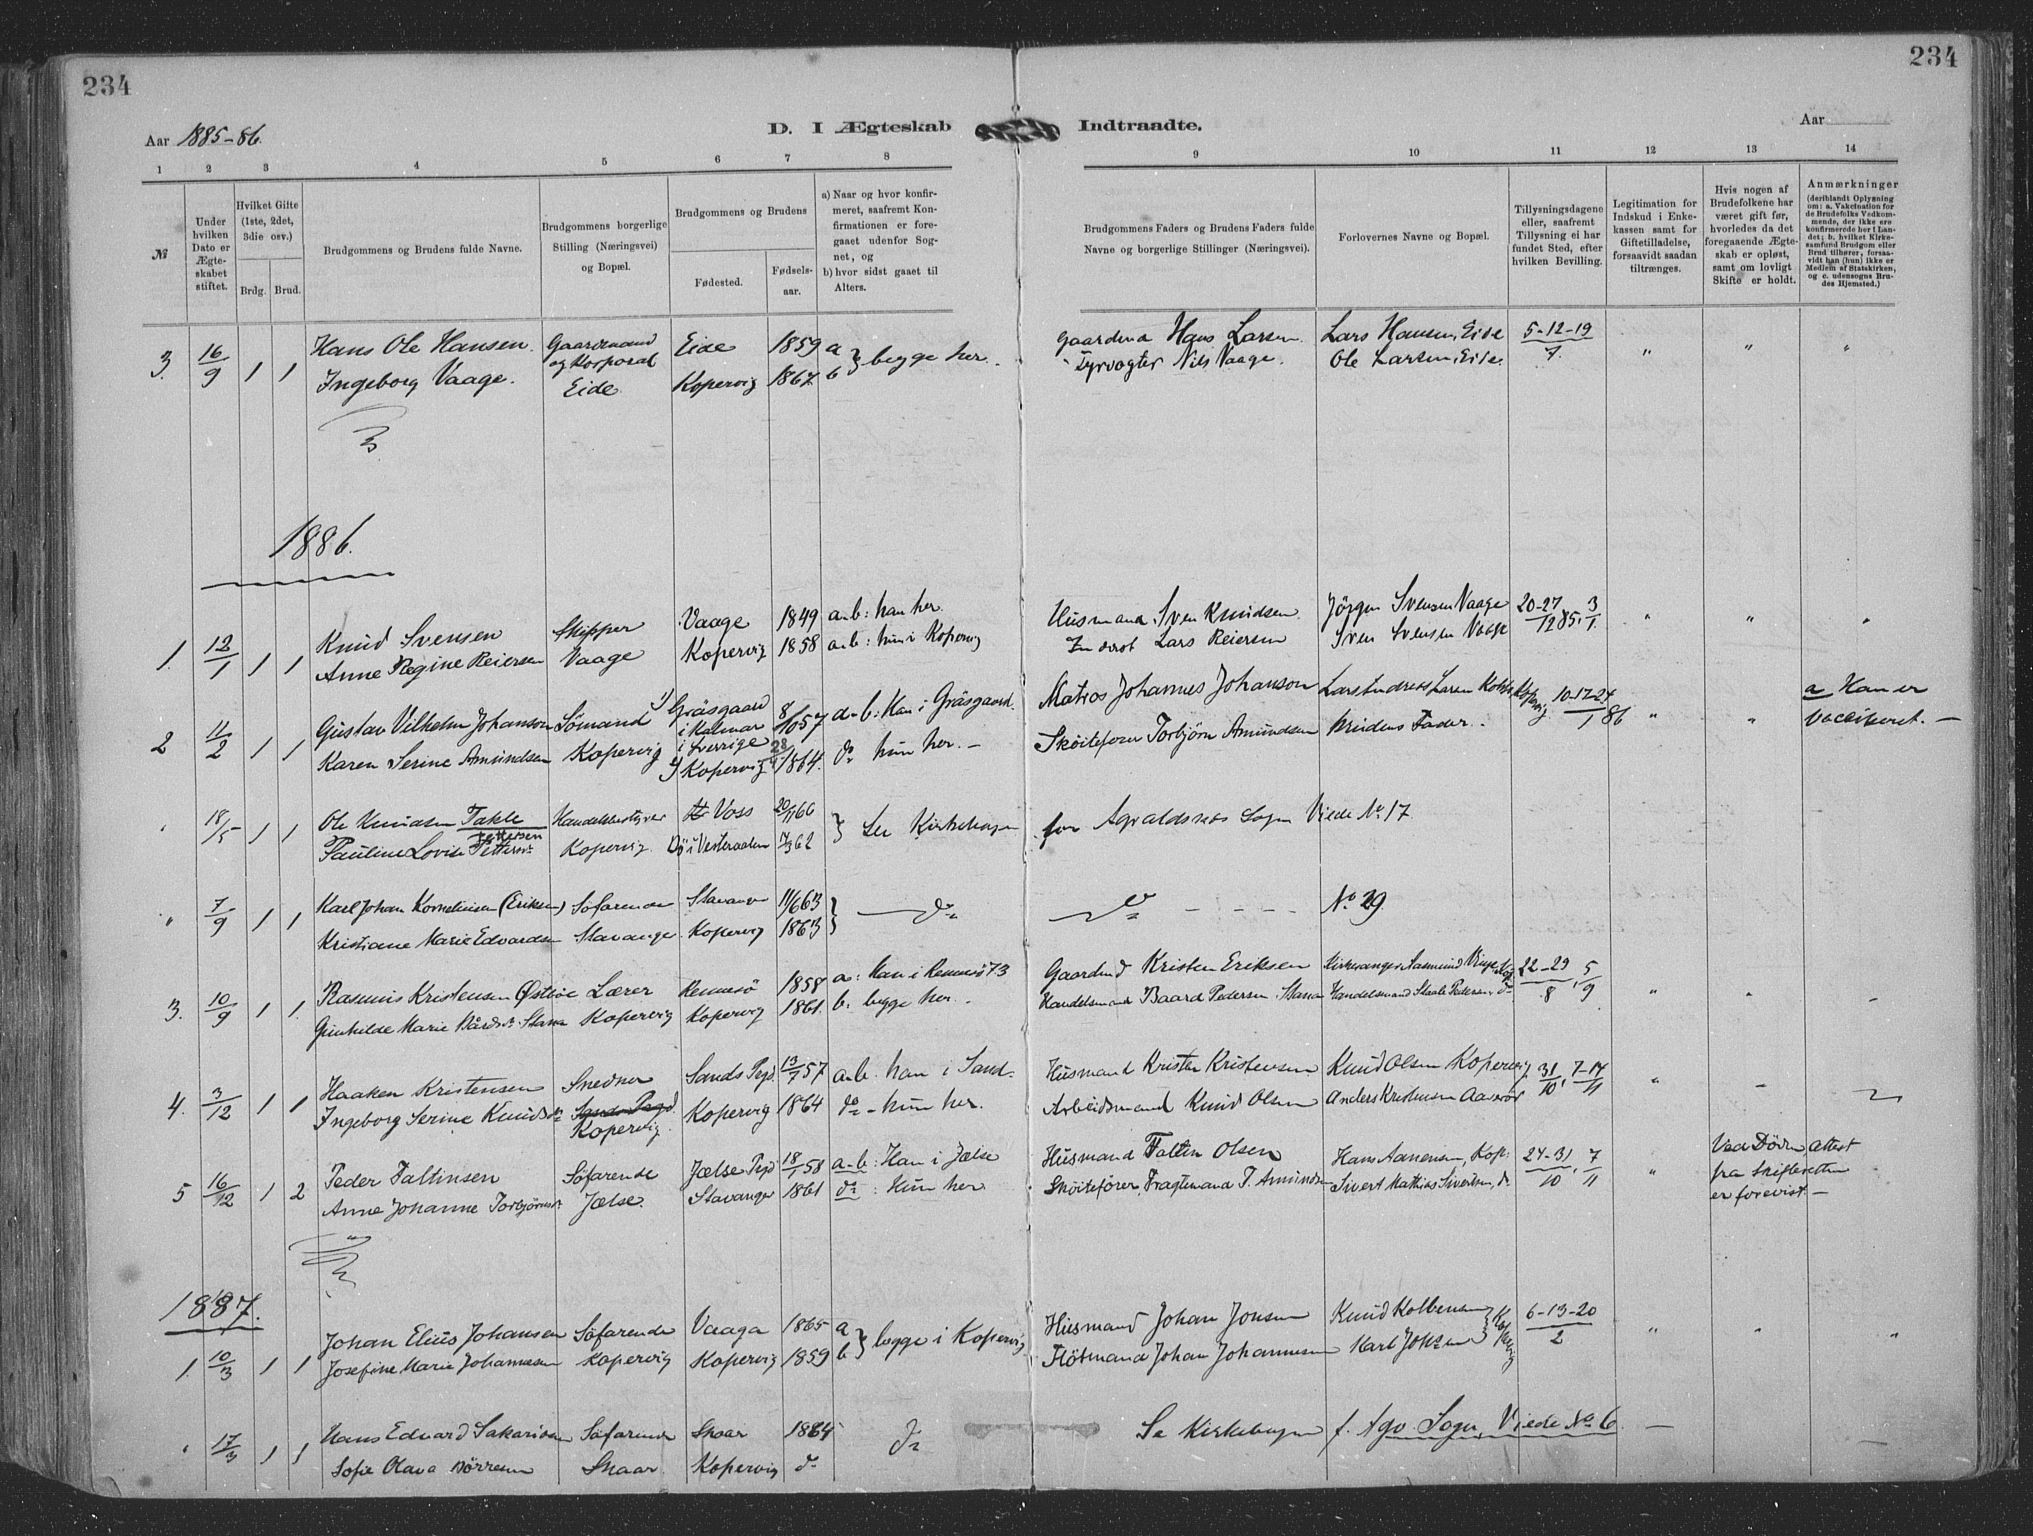 234
234
Aar 1885-86.
D. I Ægteskab Indtraadte.
Aar
1 2 3 4 5 6 7 8 9 10 11 12 13 14
№
Under hvilken Dato er Ægteskabet stiftet.
Hvilket Gifte (1ste, 2det, 3die osv.)
Brdg. Brud.
Brudgommens og Brudens fulde Navne.
Brudgommens borgerlige Stilling (Næringsvei) og Bopæl.
Brudgommens og Brudens
Fødested.
Fødselsaar.
a) Naar og hvor konfirmeret, saafremt Konfirmationen er foregaaet udenfor Sognet, og
b) hvor sidst gaaet til Alters.
Brudgommens Faders og Brudens Faders fulde Navne og borgerlige Stillinger (Næringsvei).
Forlovernes Navne og Bopæl.
Tillysningsdagene eller, saafremt Tillysning ei har fundet Sted, efter hvilken Bevilling.
Legitimation for Indskud i Enkekassen samt for Giftetilladelse, forsaavidt saadan tiltrænges.
Hvis nogen af Brudefolkene har været gift før, hvorledes da det foregaaende Ægteskab er opløst, samt om lovligt Skifte er holdt.
Anmærkninger (deriblandt Oplysning om: a. Vakcination for de Brudefolks Vedkommende, der ikke ere konfirmerede her i Landet; b. hvilket Kirkesamfund Brudgom eller Brud tilhører, forsaavidt han (hun) ikke er Medlem af Statskirken, og c. udensogns Brudes Hjemsted.)
3. 16/9 1 1 Hans Ole Hansen. Gaardmand og Korporal Eide 1859 a } begge her. Gaardmd Hans Larsen. Lars Hansen, Eide 5-12-19/7. " " "
Ingeborg Vaage. Eide. Kopervig 1867. b Fyrvogter Nils Vaage. Ole Larsen, Eide.
1886.
1. 12/1 1 1 Knud Svensen Skipper Vaage 1849 a.b: han her. Husmand Sven Knudsen. Jörgen Svensen Vaage 20-27/12 85, 3/1 " " "
Anne Regine Reiersen Vaage Kopervig 1858 a.b: hun i Kopervig Lars Reiersen Sven Svensen Vaage
2 11/2 1 1 Gustav Vilhelm Johanson Sömand 1) Gräsgaard i Kalmar i Sverrige 8/10 57 a-b: Han i Gräsgaard. Matros Johannes Johanson Lars Andreas Larsen Kopervig 10-17-24/1 86 " " a Han er vaccineret. -
Karen Serine Amundsen Kopervig Kopervig 1864. do hun her. - Skøitefører Torbjörn Amundsen Brudens Fader.
" 18/5 1 1 Ole Knudsen Takle Handelsbestyrer Voss 20/11 66 } Se Kirkebogen for Agvaldsnes Sogn Viede No 17
Pauline Lovise Pettersen Kopervig. Bö i Vesteraalen 7/3 62
" 7/9 1 1 Karl Johan Kornelius(en) (Eriksen) Söfarende Stavanger 11/6 63 } do do - - - - No 29.
Kristiane Marie Edvardsen Stavanger Kopervig 1863
3. 10/9 1 1. Rasmus Kristensen Østbøe Lærer Rennesö 1858 a: Han i Rennesö 73 Gaardmd Kristen Eriksen Kirkesanger 22-29/8, 5/9 " " "
Gunhilde Marie Bårdsdr Stana Kopervig Kopervig 1861. b: begge her. Handelsmand Baard Pedersen Stana Handelsmand Staale Pedersen, do
4. 3/12 1 1 Haaken Kristensen Snedker Sands Pgd. 13/7 57 a.b. han i Sand. Husmand Krister Kristensen Knud Olsen Kopervig 31/10, 7-14/11 " - "
Ingeborg Serine Knudsdr Sands Pgd. Kopervig Kopervig 1864 do - hun her. Arbeidsmand Knud Olsen Anders Kristensen
5 16/12 1 2 Peder Faltinsen Söfarende Jælse Pgd 18/1 58 a-b: Han i Jælse Husmand Faltin Olsen Hans Aanensen, Kop. 24-31/10, 7/11 " Ved Döden, attest fra skifteretten er forevist. -
Anne Johanne Torbjörnsdr Jælse. Stavanger 1861 do: Hun her Skøitefører, Fragtemand T. Amundsen Sivert Mathias Sivertsen, do
1887.
1. 10/3 1 1 Johan Elius Johansen Söfarende Vaaga 1865 a } begge i Kopervig Husmand Johan Jonsen Knud Kolbensen } Kopervig 6-13-20/2 " " "
Josefine Marie Johannesen Kopervig Kopervig 1859 b Flötmand Johan Johannesen Karl Johnsen
" 17/3 1 1 Hans Edvard Sakariasen Söfarende Snaar 1864 do Se Kirkebogen f. Agv Sogn, Viede No 6. -
Sofie Olava Börresen Snaar. Kopervig do